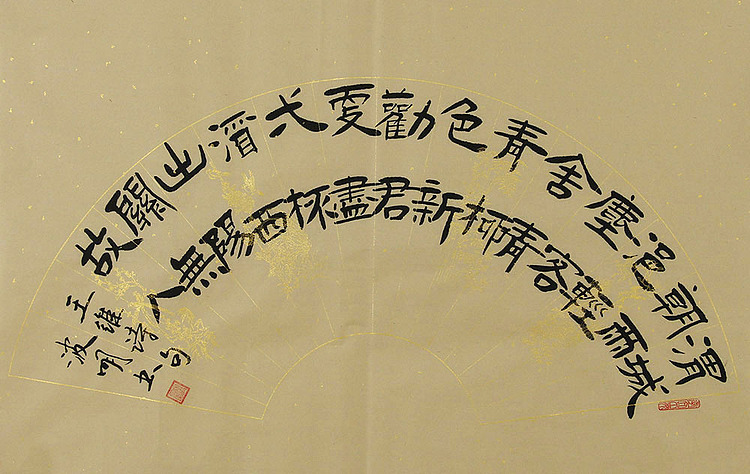 渭城
朝雨
浥輕
塵客
舍青
青柳
色新
勸君
更盡
弌杯
酒西
出陽
關無
故人
王維诗句
波明书